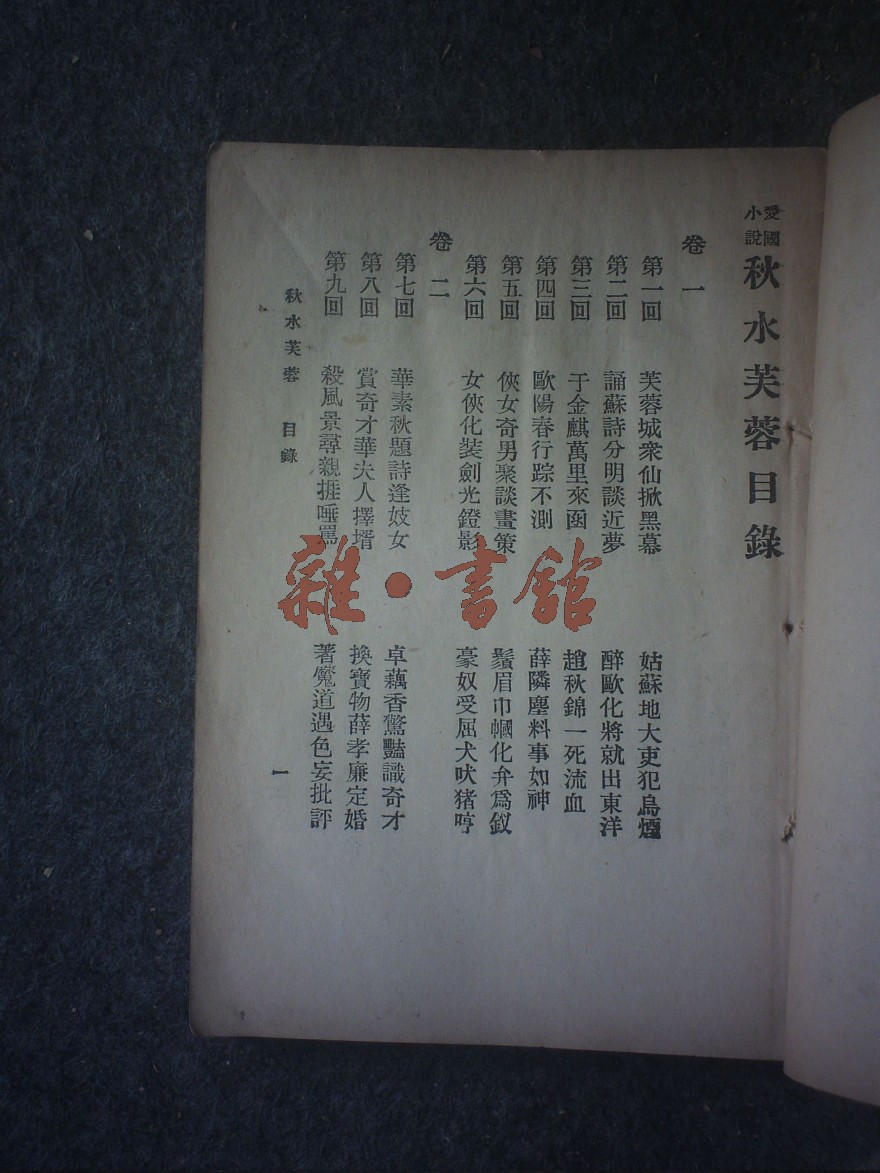 愛國小說 秋水芙蓉目錄
卷一
第一回 芙蓉城衆仙掀黑幕 姑蘇地大吏犯烏煙
第二回 誦蘇詩分明談近夢 醉歐化將就出東洋
第三回 于金麒萬里來函 趙秋錦一死流血
第四回 歐陽春行踪不測 薛隣塵料事如神
第五回 俠女奇男聚談畫策 鬚眉巾幗化弁爲釵
第六回 女俠化裝劍光鐙影 豪奴受屈犬吠猪哼
卷二
第七回 華素秋題詩逢妓女 卓藕香驚豔識奇才
第八回 賞奇才華夫人擇壻 換寶物薛孝廉定婚
第九回 殺風景尋親捱唾罵 著魔道遇色妄批評
秋水芙蓉 目錄 一
雜·書館